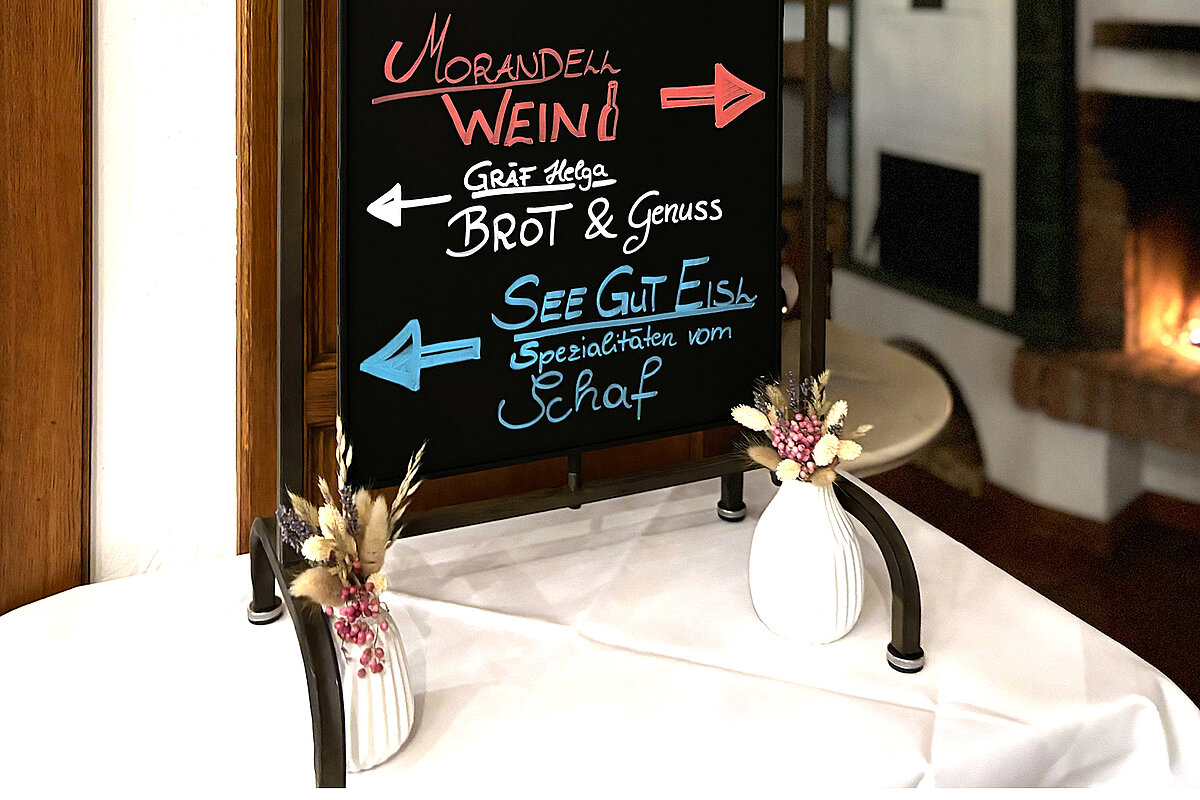 MORANDELL
WEIN
GRÄF Helga
BROT & Genuss
SEE GUT EISL
Spezialitäten vom
Schaf